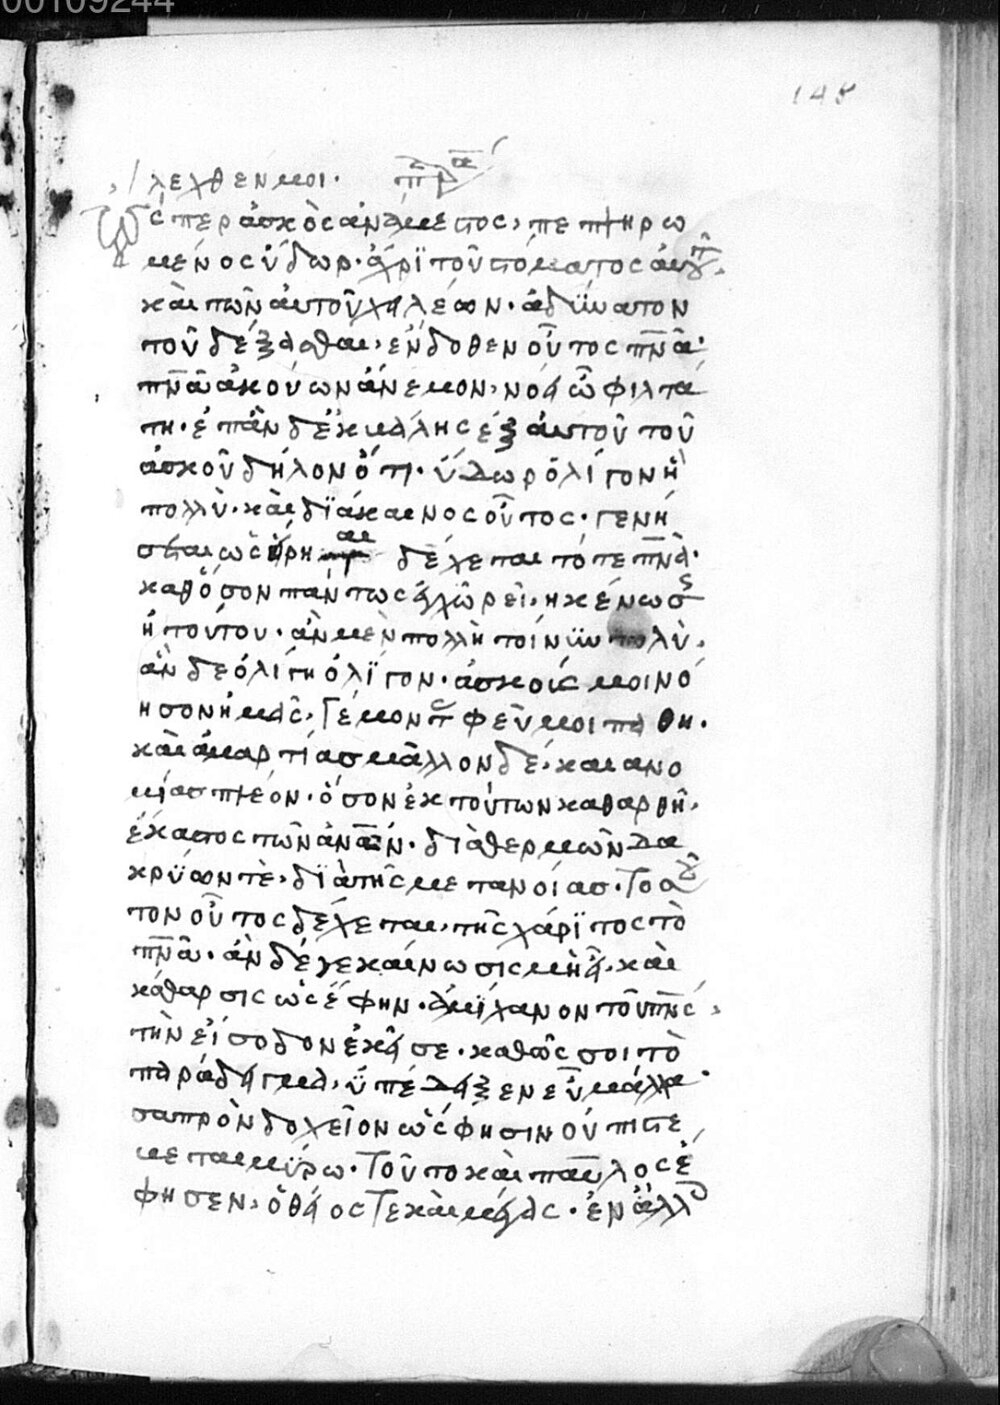 00109244
148
λεχθέν μοι.
Ὥσπερ ἀσκὸς ἀνάμεστος, πεπληρω
μένος ὕδωρ. ἄχρι τοῦ στόματος αὐτοῦ,
καὶ τῶν αὐτοῦ χειλέων. ἀδύνατον
τοῦ δέξασθαι, ἔνδοθεν οὗτος πνᾶ·
πνᾶ ἀκούων ἄνεμον, νόει ὦ φίλτα
τη. ἐπὰν δ' ἐκβάλης ἐξ αὐτοῦ τοῦ
ἀσκοῦ δῆλον ὅτι. ὕδωρ ὀλίγον ἢ
πολλὺ. καὶ διάκαινος οὗτος. γενή
σεται ὡς εἴρηται δέχεται τότε πνᾶ.
καθ' ὅσον πάντως εὐχωρεῖ, ἡ κένωσις
ἡ τούτου. ἂν μὲν πολλὴ τοίνυν πολὺ,
ἂν δε ὀλίγη ὀλίγον. ἀσκοίς μοι νό
ησον ἡμᾶς, γέμοντας φεῦ μοι πάθη.
καὶ ἁμαρτίας μᾶλλον δὲ, καὶ ανο
μίας πλέον. ὅσον ἐκ τούτων καθαρθῆ,
ἕκαστος τῶν ἀνῶν. διὰ θερμῶν δα
κρύων τὲ, διὰ τῆς μετανοίας. Τοσοῦ
τον οὗτος δέχεται, τῆς χάριτος τὸ
πνᾶ. ἂν δέ γε καίνωσις μὴ ἦ. καὶ
κάθαρσις ὡς ἔφην. ἀμήχανον τοῦ πνς,
τὴν εἴσοδον ἐκεῖσε. καθὼς σοι τὸ
παράδειγμα, ὑπέδειξεν εὖ μάλα.
σαπρὸν δοχεῖον ὥς φησιν οὐ πιστε,
μεται μύρω. Τοῦτο καὶ παῦλος ἔ
φησεν, ὁ θεῖος τε καὶ μέγας. ἐν ἄλλοις